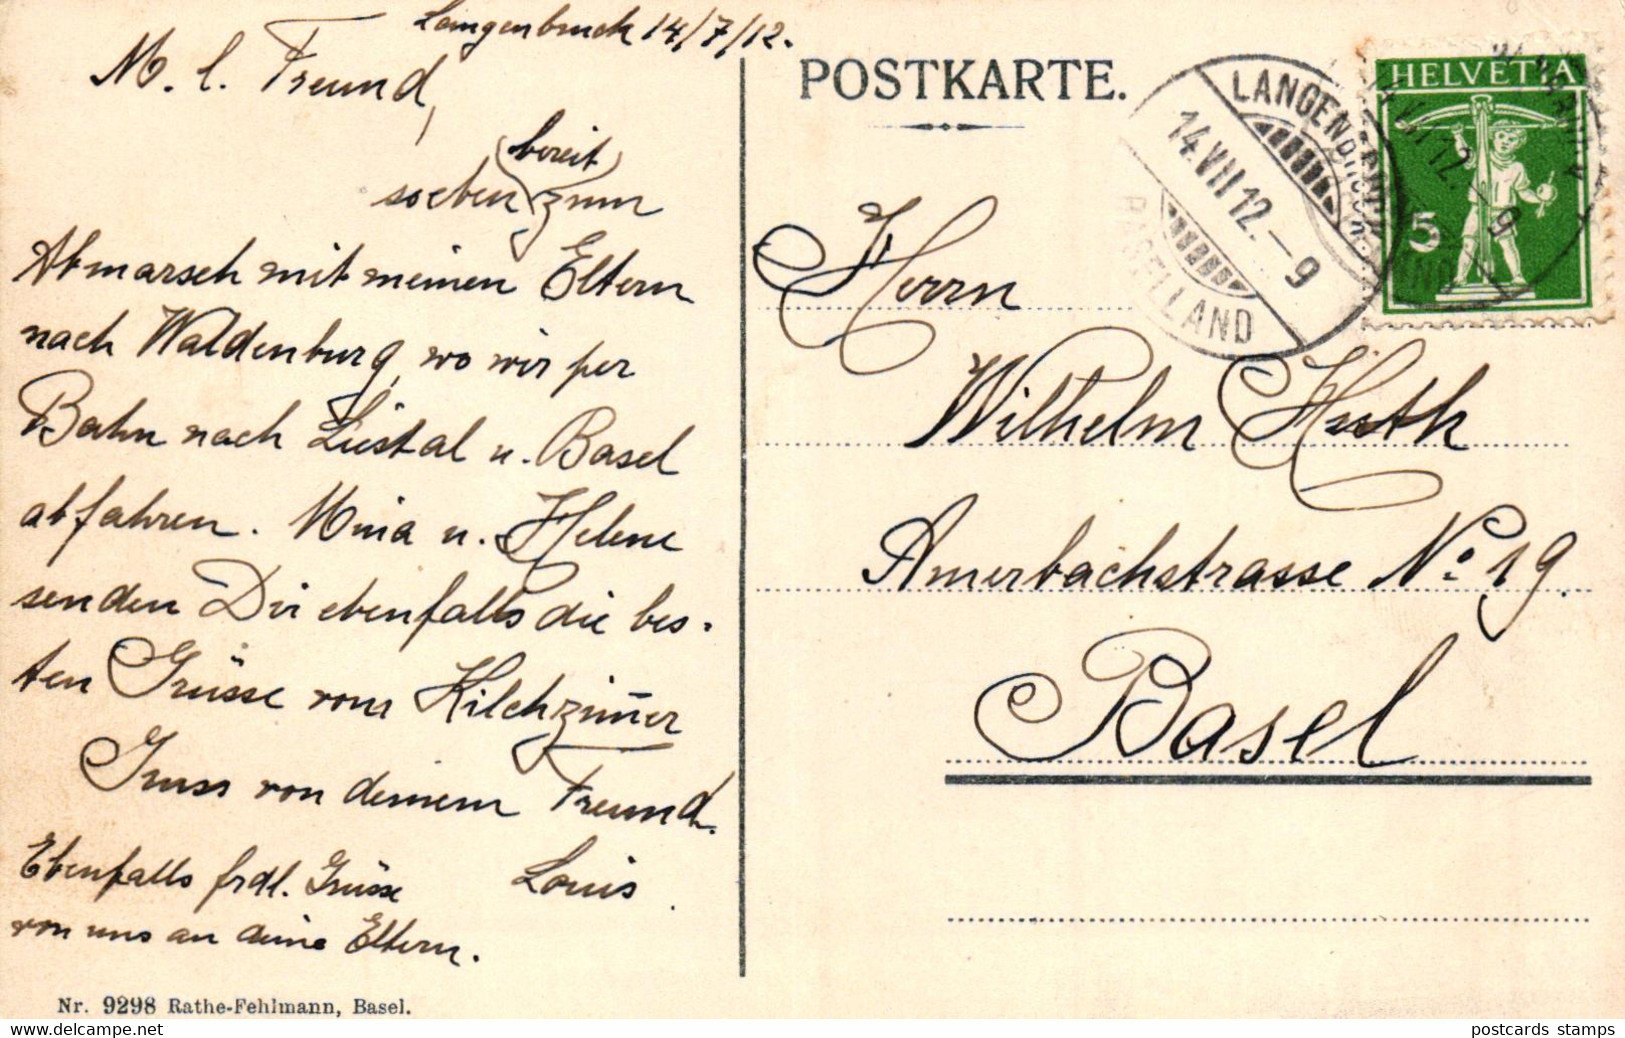 Langenbruck 14/7/12.
M. l. Freund,
(bereit)
soeben zum
Abmarsch mit meinen Eltern
nach Waldenburg, wo wir per
Bahn nach Liestal u. Basel
abfahren. Mina u. Helene
senden Dir ebenfalls die bes-
ten Grüsse vom Kilchzim̄er
Gruss von deinem Freund.
Louis.
Ebenfalls frdl. Grüsse
von uns an deine Eltern.
Nr. 9298 Rathe-Fehlmann, Basel.
POSTKARTE.
LANGENBRUCK
14.VII.12.–9
BASELLAND
HELVETIA
5
Herrn
Wilhelm Huth
Amerbachstrasse No 19.
Basel
postcards stamps